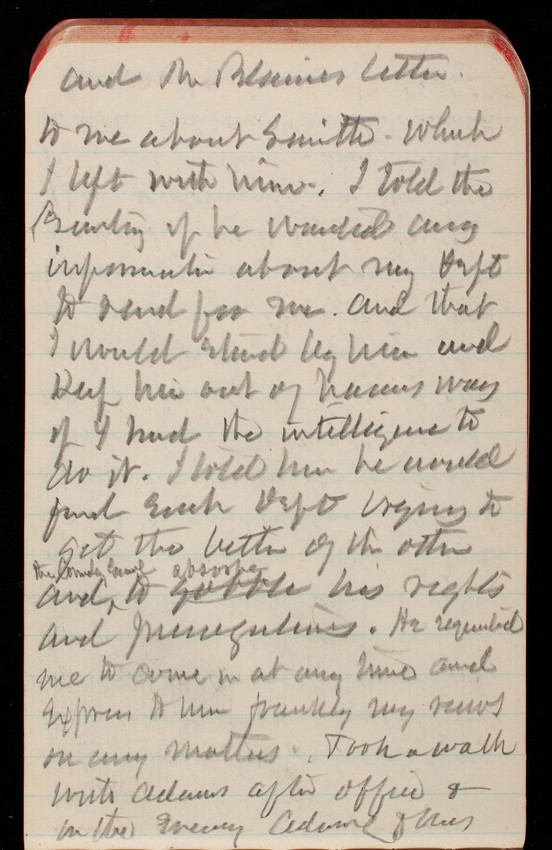 and Mr Blaines letter.
to me about Smith. Which
I left with him. I told the
Secretary if he wanted any
information about my Dept
to send for me. and that
I would stand by him and
Keep him out of harms way
if I had the intelligence to
do it. I told him he would
find each Dept trying to
get the better of the other
and, to absorb his rights
and prerogatives. He requested
me to come in at any time and
express to him frankly my views
on any matters. Took a walk
with Adams after office &
in the Evening Adams &